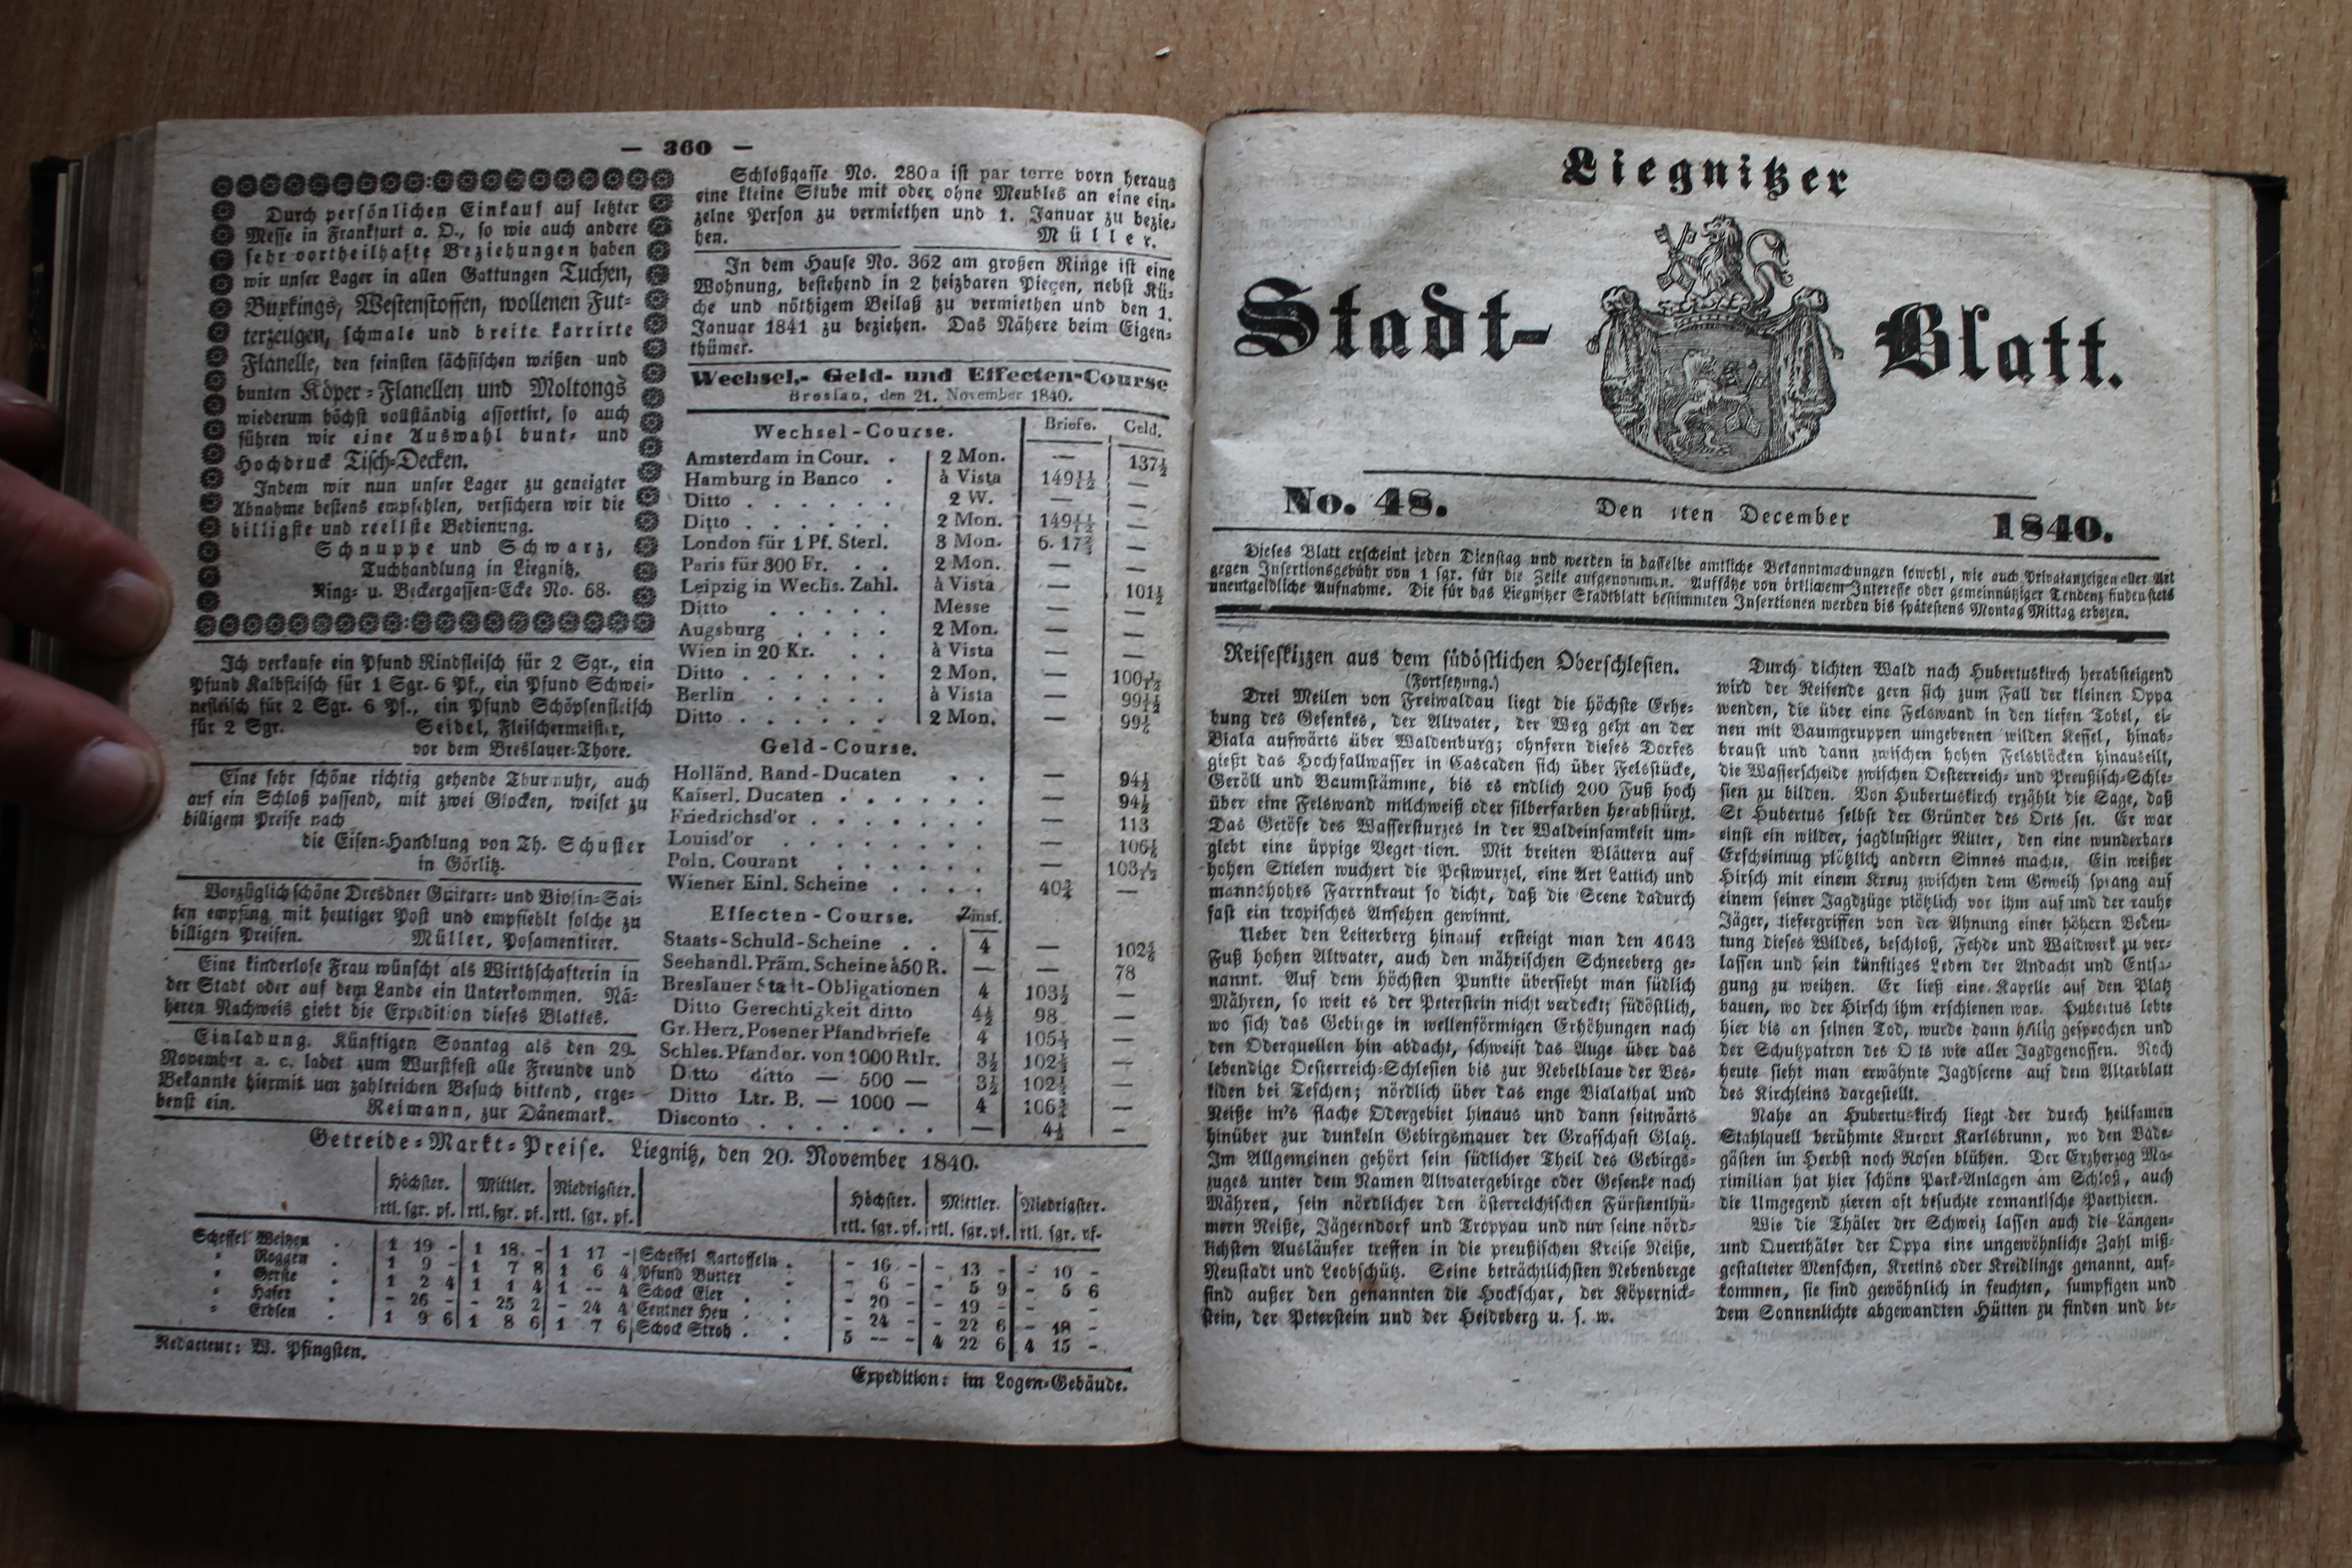 — 360 —
Durch persönlichen Einkauf auf letzter
Messe in Frankfurt a. O., so wie auch andere
sehr vortheilhafte Beziehungen haben
wir unser Lager in allen Gattungen Tuchen,
Buxkings, Westenstoffen, wollenen Fut-
terzeugen, schmale und breite karrirte
Flanelle, den feinsten sächsischen weißen und
bunten Köper-Flanellen und Moltongs
wiederum höchst vollständig assortirt, so auch
führen wir eine Auswahl bunt- und
Hochdruck Tisch-Decken.
Indem wir nun unser Lager zu geneigter
Abnahme bestens empfehlen, versichern wir die
billigste und reellste Bedienung.
Schnuppe und Schwarz,
Tuchhandlung in Liegnitz,
Ring- u. Beckergassen-Ecke No. 68.
Ich verkaufe ein Pfund Rindfleisch für 2 Sgr., ein
Pfund Kalbfleisch für 1 Sgr. 6 Pf., ein Pfund Schwei-
nefleisch für 2 Sgr. 6 Pf., ein Pfund Schöpsenfleisch
für 2 Sgr. Seidel, Fleischermeister,
vor dem Breslauer-Thore.
Eine sehr schöne richtig gehende Thurmuhr, auch
auf ein Schloß passend, mit zwei Glocken, weiset zu
billigem Preise nach
die Eisen-Handlung von Th. Schuster
in Görlitz.
Vorzüglich schöne Dresdner Guitarr- und Violin-Sai-
ten empfing mit heutiger Post und empfiehlt solche zu
billigen Preisen. Müller, Posamentirer.
Eine kinderlose Frau wünscht als Wirthschafterin in
der Stadt oder auf dem Lande ein Unterkommen. Nä-
heren Nachweis giebt die Expedition dieses Blattes.
Einladung. Künftigen Sonntag als den 29.
November a. c. ladet zum Wurstfest alle Freunde und
Bekannte hiermit um zahlreichen Besuch bittend, erge-
benst ein. Reimann, zur Dänemark.
Schloßgasse No. 280a ist par terre vorn heraus
eine kleine Stube mit oder ohne Meubles an eine ein-
zelne Person zu vermiethen und 1. Januar zu bezie-
hen. Müller.
In dem Hause No. 362 am großen Ringe ist eine
Wohnung, bestehend in 2 heizbaren Piegen, nebst Kü-
che und nöthigem Beilaß zu vermiethen und den 1.
Januar 1841 zu beziehen. Das Nähere beim Eigen-
thümer.
Wechsel,- Geld- und Effecten-Course
Breslau, den 21. November 1840.
Wechsel-Course. Briefe. Geld.
Amsterdam in Cour. . 2 Mon. — 137½
Hamburg in Banco . à Vista 149 11/12 —
Ditto . . . . . . 2 W. — —
Ditto . . . . . . 2 Mon. 149 11/12 —
London für 1 Pf. Sterl. 3 Mon. 6. 17⅔ —
Paris für 300 Fr. . . 2 Mon. — —
Leipzig in Wechs. Zahl. à Vista — 101½
Ditto . . . . . Messe — —
Augsburg . . . . 2 Mon. — —
Wien in 20 Kr. . . à Vista — —
Ditto . . . . . . 2 Mon. — 100 1/12
Berlin . . . . . à Vista — 99 11/12
Ditto . . . . . . 2 Mon. — 99⅙
Geld-Course.
Holländ. Rand-Ducaten . . — 94½
Kaiserl. Ducaten . . . . . — 94½
Friedrichsd'or . . . . . . — 113
Louisd'or . . . . . . . — 106⅙
Poln. Courant . . . . . — 103 1/12
Wiener Einl. Scheine . . . . 40¾ —
Effecten-Course. Zinsf.
Staats-Schuld-Scheine . . 4 — 102⅚
Seehandl. Präm. Scheine à 50 R. — — 78
Breslauer Stadt-Obligationen 4 103½ —
Ditto Gerechtigkeit ditto 4½ 98 —
Gr. Herz. Posener Pfandbriefe 4 105½ —
Schles. Pfandbr. von 1000 Rtlr. 3½ 102½ —
Ditto ditto — 500 — 3½ 102½ —
Ditto Ltr. B. — 1000 — 4 106¾ —
Disconto . . . . . . . — 4½ —
Getreide-Markt-Preise. Liegnitz, den 20. November 1840.
Höchster. Mittler. Niedrigster. Höchster. Mittler. Niedrigster.
rtl. sgr. pf. rtl. sgr. pf. rtl. sgr. pf. rtl. sgr. pf. rtl. sgr. pf. rtl. sgr. pf.
Scheffel Weitzen . 1 19 - 1 18 - 1 17 - Scheffel Kartoffeln . - 16 - - 13 - - 10 -
" Roggen . 1 9 - 1 7 8 1 6 4 Pfund Butter . - 6 - - 5 9 - 5 6
" Gerste . 1 2 4 1 1 4 1 -- 4 Schock Eier . . - 20 - - 19 - - -
" Hafer . - 26 - - 25 2 - 24 4 Centner Heu . . - 24 - - 22 6 - 18 -
" Erbsen . 1 9 6 1 8 6 1 7 6 Schock Stroh . . 5 -- - 4 22 6 4 15 -
Redacteur: W. Pfingsten.
Expedition: im Logen-Gebäude.
Liegnitzer
Stadt-Blatt.
No. 48. Den 1ten December 1840.
Dieses Blatt erscheint jeden Dienstag und werden in dasselbe amtliche Bekanntmachungen sowohl, wie auch Privatanzeigen aller Art
gegen Insertionsgebühr von 1 sgr. für die Zeile aufgenommen. Aufsätze von örtlichem Interesse oder gemeinnütziger Tendenz finden stets
unentgeldliche Aufnahme. Die für das Liegnitzer Stadtblatt bestimmten Insertionen werden bis spätestens Montag Mittag erbeten.
Reiseskizzen aus dem südöstlichen Oberschlesien.
(Fortsetzung.)
Drei Meilen von Freiwaldau liegt die höchste Erhe-
bung des Gesenkes, der Altvater, der Weg geht an der
Biala aufwärts über Waldenburg; ohnfern dieses Dorfes
gießt das Hochfallwasser in Cascaden sich über Felsstücke,
Geröll und Baumstämme, bis es endlich 200 Fuß hoch
über eine Felswand milchweiß oder silberfarben herabstürzt.
Das Getöse des Wassersturzes in der Waldeinsamkeit um-
giebt eine üppige Veget tion. Mit breiten Blättern auf
hohen Stielen wuchert die Pestwurzel, eine Art Lattich und
mannshohes Farrnkraut so dicht, daß die Scene dadurch
fast ein tropisches Ansehen gewinnt.
Ueber den Leiterberg hinauf ersteigt man den 4643
Fuß hohen Altvater, auch den mährischen Schneeberg ge-
nannt. Auf dem höchsten Punkte übersieht man südlich
Mähren, so weit es der Peterstein nicht verdeckt; südöstlich,
wo sich das Gebirge in wellenförmigen Erhöhungen nach
den Oderquellen hin abdacht, schweift das Auge über das
lebendige Oesterreich-Schlesien bis zur Nebelblaue der Bes-
kiden bei Teschen; nördlich über das enge Bialathal und
Neiße in's flache Odergebiet hinaus und dann seitwärts
hinüber zur dunkeln Gebirgsmauer der Grafschaft Glatz.
Im Allgemeinen gehört sein südlicher Theil des Gebirgs-
zuges unter dem Namen Altvatergebirge oder Gesenke nach
Mähren, sein nördlicher den österreichischen Fürstenthü-
mern Neiße, Jägerndorf und Troppau und nur seine nörd-
lichsten Ausläufer treffen in die preußischen Kreise Neiße,
Neustadt und Leobschütz. Seine beträchtlichsten Nebenberge
sind außer den genannten die Hockschar, der Köpernick-
stein, der Peterstein und der Heideberg u. s. w.
Durch dichten Wald nach Hubertuskirch herabsteigend
wird der Reisende gern sich zum Fall der kleinen Oppa
wenden, die über eine Felswand in den tiefen Tobel, ei-
nen mit Baumgruppen umgebenen wilden Kessel, hinab-
braust und dann zwischen hohen Felsblöcken hinauseilt,
die Wasserscheide zwischen Oesterreich- und Preußisch-Schle-
sien zu bilden. Von Hubertuskirch erzählt die Sage, daß
St Hubertus selbst der Gründer des Orts sei. Er war
einst ein wilder, jagdlustiger Ritter, den eine wunderbare
Erscheinung plötzlich andern Sinnes machte. Ein weißer
Hirsch mit einem Kreuz zwischen dem Geweih sprang auf
einem seiner Jagdzüge plötzlich vor ihm auf und der rauhe
Jäger, tiefergriffen von der Ahnung einer höhern Bedeu-
tung dieses Wildes, beschloß, Fehde und Waidwerk zu ver-
lassen und sein künftiges Leben der Andacht und Entsa-
gung zu weihen. Er ließ eine Kapelle auf den Platz
bauen, wo der Hirsch ihm erschienen war. Hubertus lebte
hier bis an seinen Tod, wurde dann heilig gesprochen und
der Schutzpatron des O ts wie aller Jagdgenossen. Noch
heute sieht man erwähnte Jagdscene auf dem Altarblatt
des Kirchleins dargestellt.
Nahe an Hubertuskirch liegt der durch heilsamen
Stahlquell berühmte Kurort Karlsbrunn, wo den Bade-
gästen im Herbst noch Rosen blühen. Der Erzherzog Ma-
ximilian hat hier schöne Park-Anlagen am Schloß, auch
die Umgegend zieren oft besuchte romantische Parthieen.
Wie die Thäler der Schweiz lassen auch die Längen-
und Querthäler der Oppa eine ungewöhnliche Zahl miß-
gestalteter Menschen, Kretins oder Kreidlinge genannt, auf-
kommen, sie sind gewöhnlich in feuchten, sumpfigen und
dem Sonnenlichte abgewandten Hütten zu finden und be-